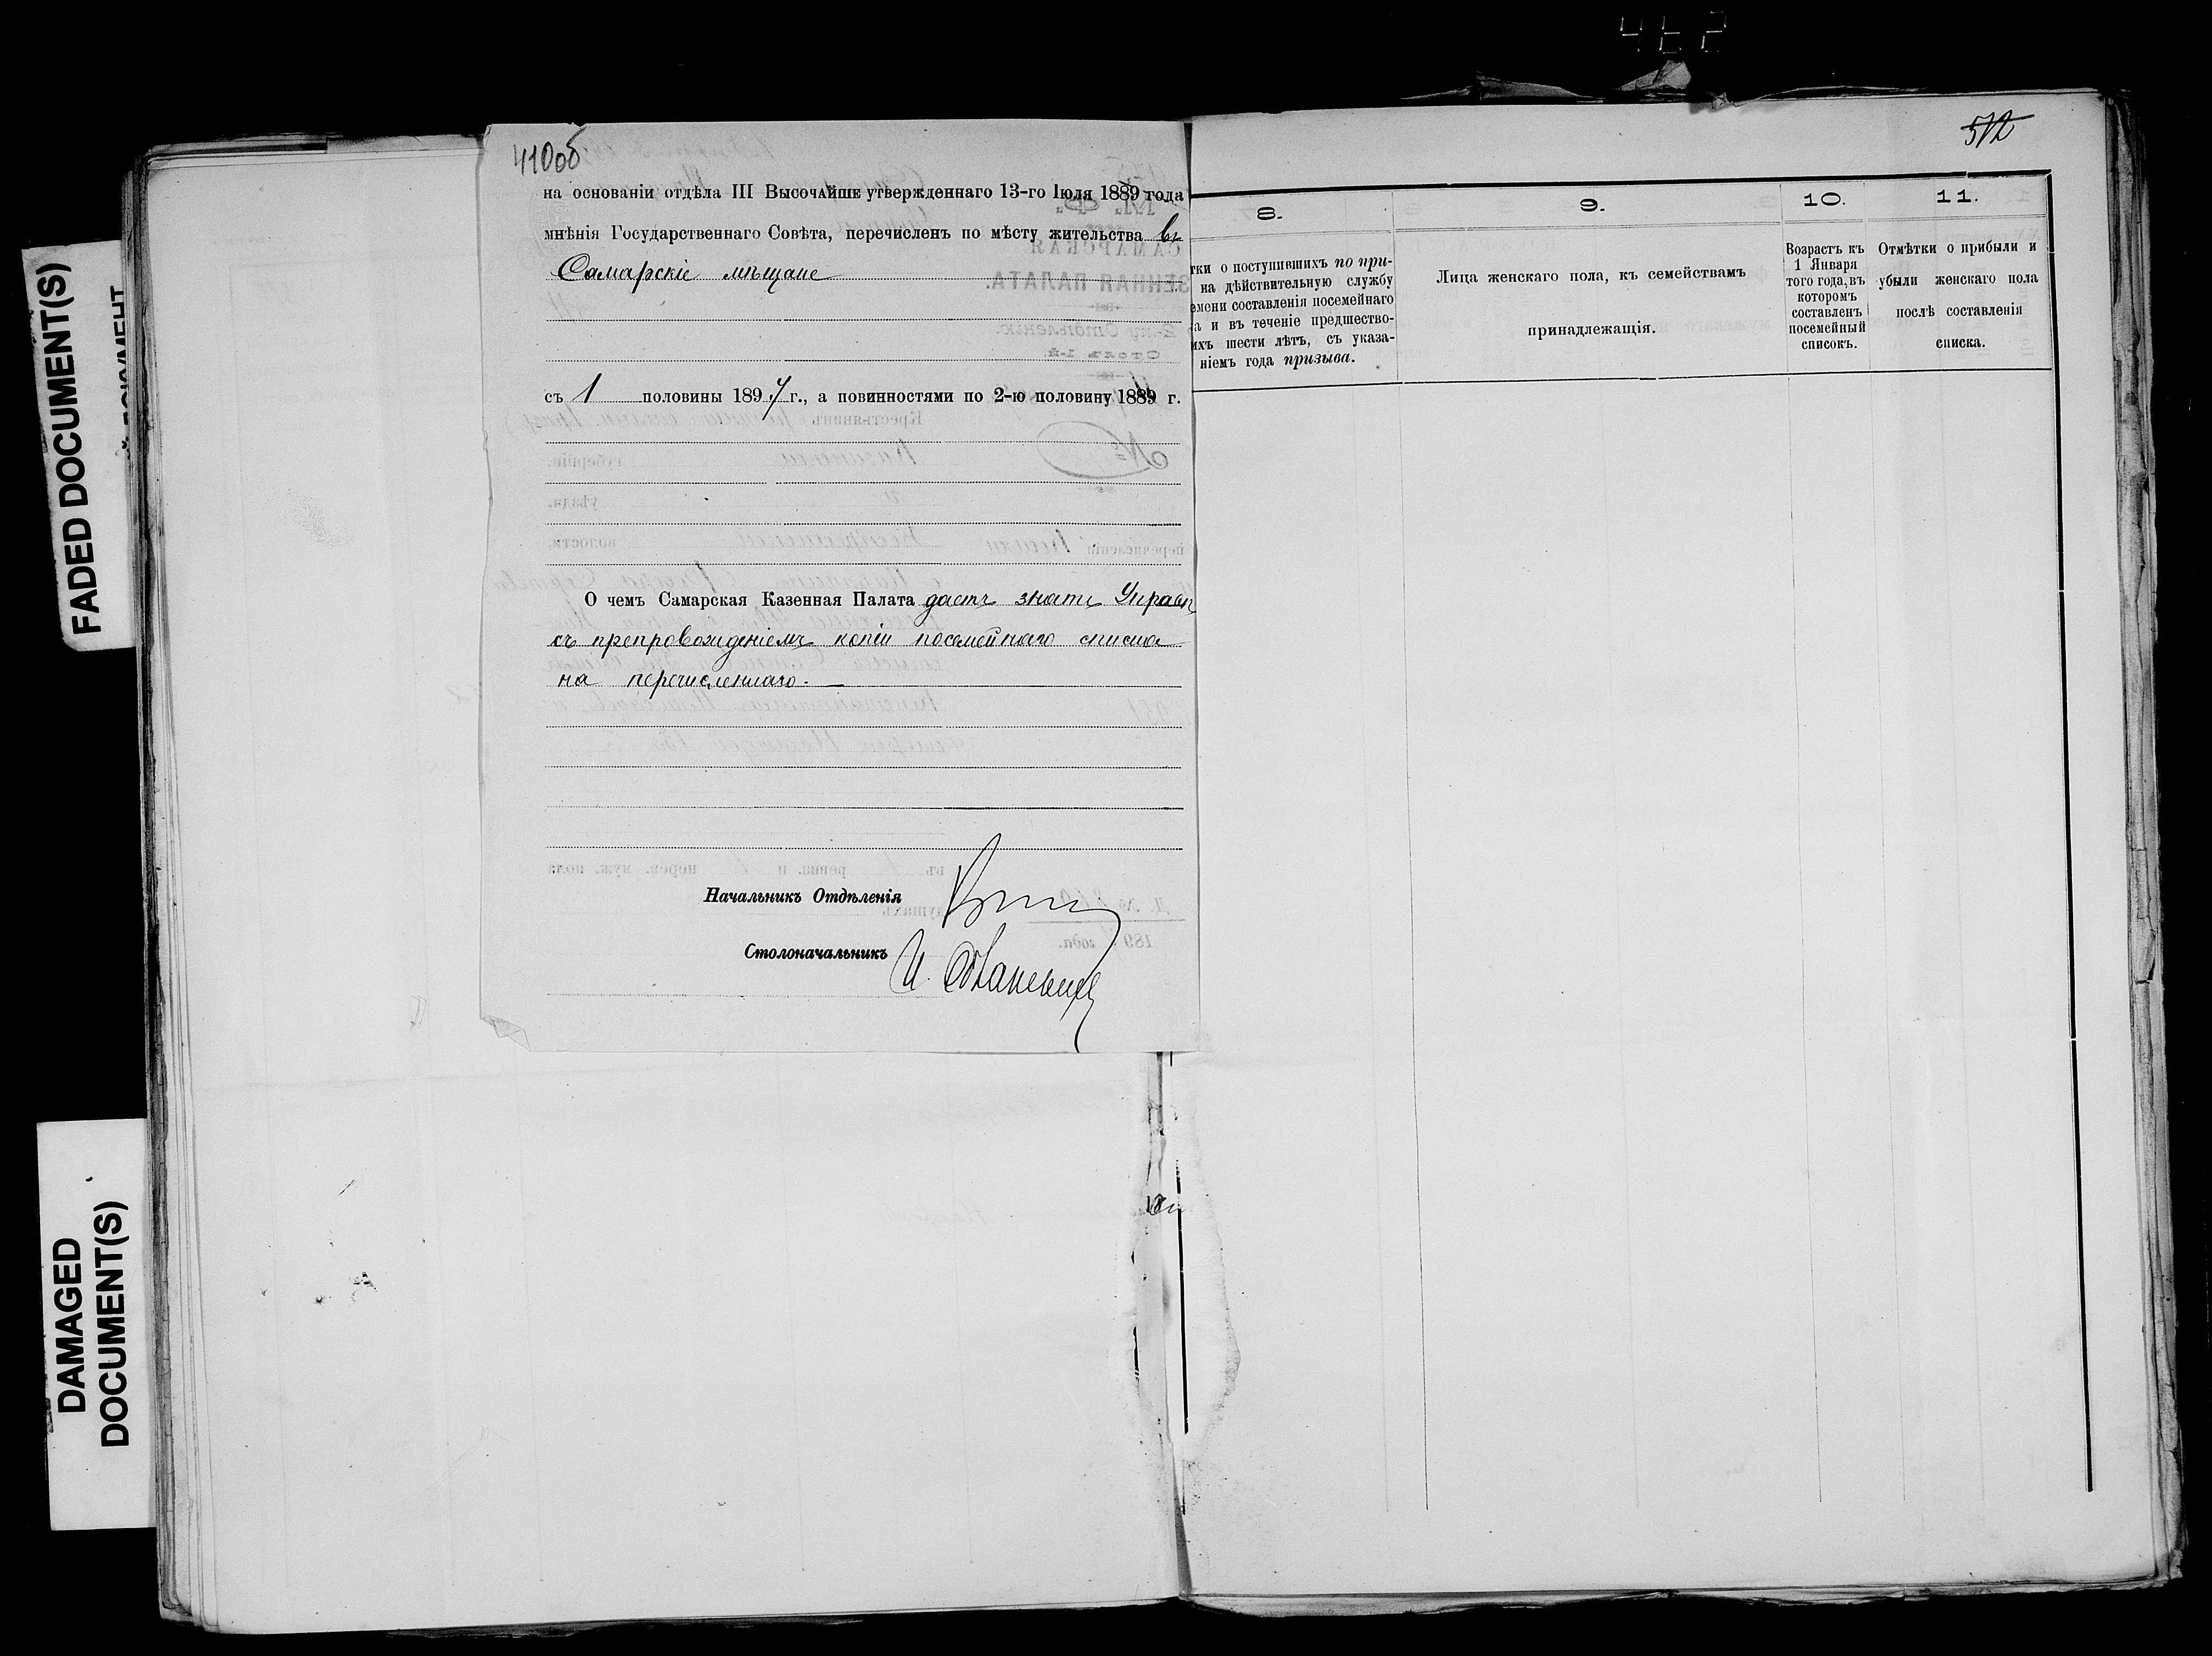 FADED DOCUMENT(S)
DAMAGED
DOCUMENT(S)
410об
на основаніи отдѣла III Высочайше утвержденнаго 13-го Іюля 1889 года
мнѣнія Государственнаго Совѣта, перечисленъ по мѣсту жительства въ
Самарскіе мѣщане
съ 1 половины 1897 г., а повинностями по 2-ю половину 1889 г.
О чемъ Самарская Казенная Палата даетъ знать Управѣ
съ препровожденіемъ копіи посемейнаго списка
на перечисленнаго.
Начальникъ Отдѣленія
Столоначальникъ И.
512
8.
9.
10.
11.
тки о поступившихъ по при-
на дѣйствительную службу
емени составленія посемейнаго
а и въ теченіе предшество-
ихъ шести лѣтъ, съ указа-
ніемъ года призыва.
Лица женскаго пола, къ семействамъ
принадлежащія.
Возрастъ къ
1 Января
того года, въ
которомъ
составленъ
посемейный
списокъ.
Отмѣтки о прибыли и
убыли женскаго пола
послѣ составленія
списка.